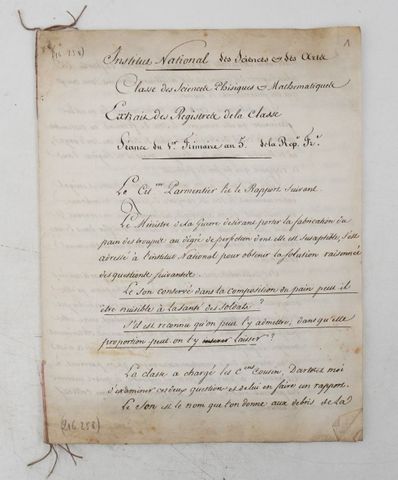 (16.258)
1
Institut National des Sciences & des Arts
Classe des Sciences Phisiques & Mathematiques
Extrait des Registres de la Classe
Séance du 1er Frimaire an 5. de la Rep. Fr.
Le Citen Parmentier lit le Rapport Suivant.
Le Ministre de la Guerre desirant porter la fabrication du
pain des troupes au dégré de perfection dont elle est susceptible, s'est
adressé à l'institut National pour obtenir la solution raisonnée
des questions suivantes.
Le son conservé dans la composition du pain peut il
être nuisible à la santé des soldats?
S'il est reconnu qu'on peut l'y admettre, dans quelle
proportion peut on l'y laisser?
La classe a chargé les Cens Cousin, Darcet & moi
d'examiner ces deux questions & de lui en faire un rapport.
Le Son est le nom que l'on donne aux débris de la
(16.258)